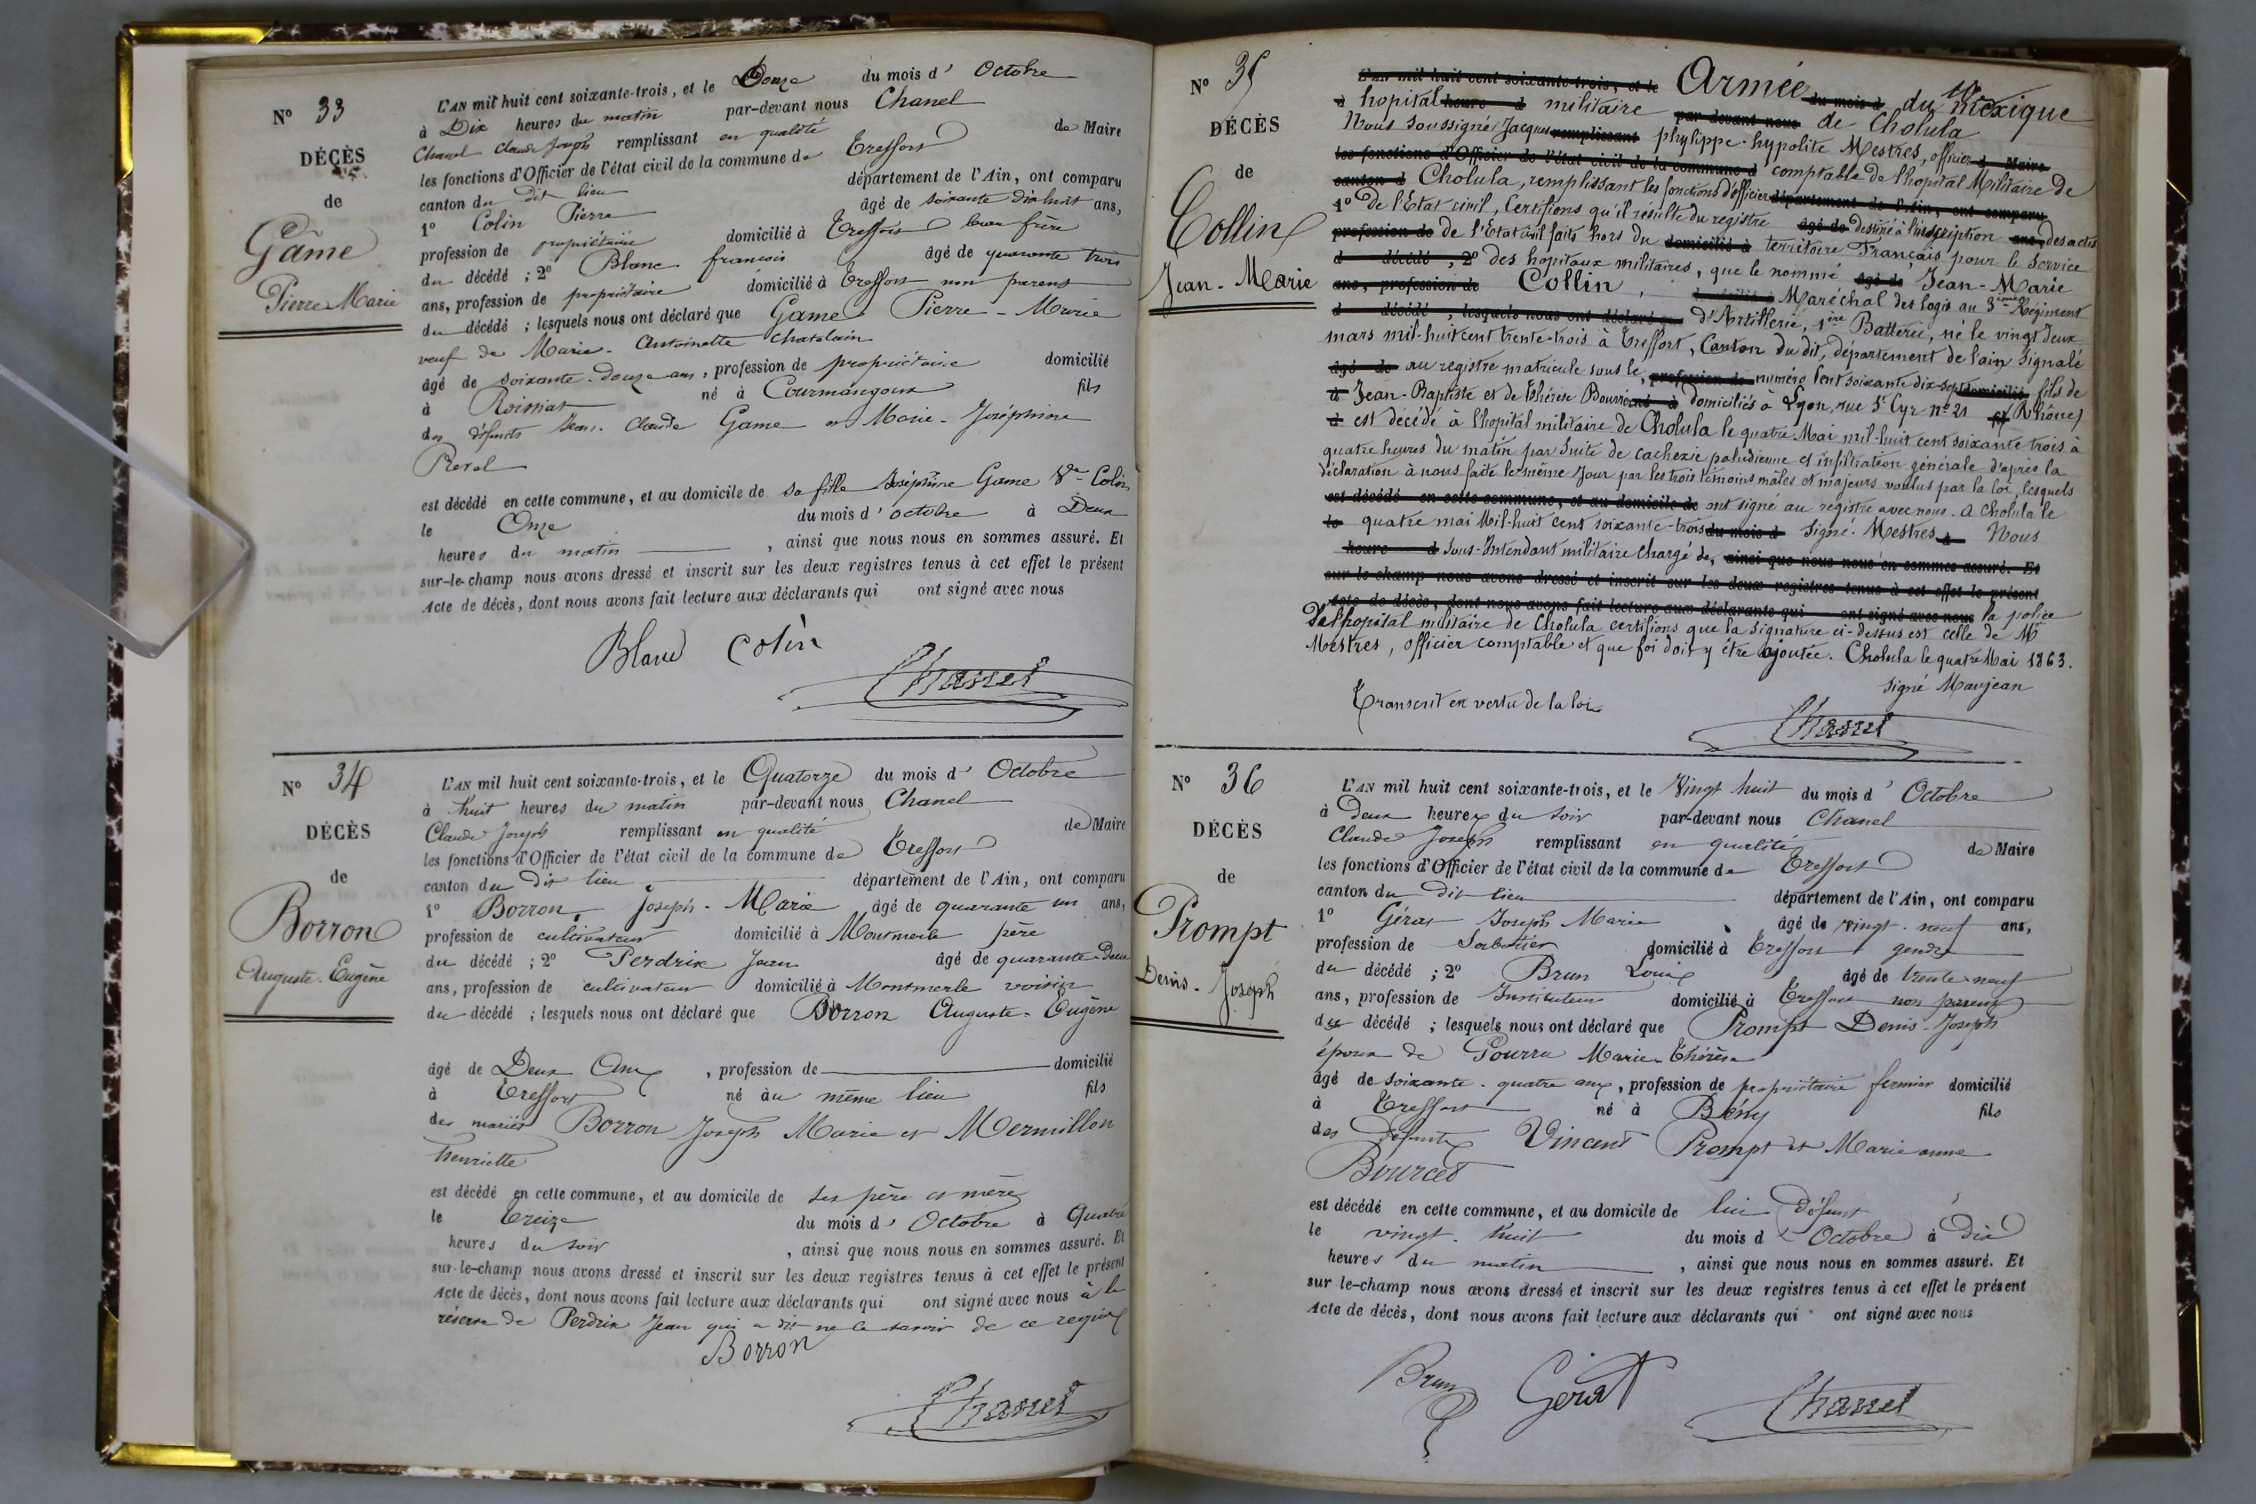 N° 33
DÉCÈS
de
Game
Pierre Marie
L'AN mil huit cent soixante-trois, et le Douze du mois d' Octobre
à Dix heures du matin par-devant nous Chanel
Chanel Claude Joseph remplissant en qualité de Maire
les fonctions d'Officier de l'état civil de la commune de Treffort
canton du dit lieu département de l'Ain, ont comparu
1° Colin Pierre âgé de soixante dix huit ans,
profession de propriétaire domicilié à Treffort beau frère
du décédé ; 2° Blanc françois âgé de quarante trois
ans, profession de propriétaire domicilié à Treffort non parent
du décédé ; lesquels nous ont déclaré que Game Pierre - Marie
veuf de Marie - Antoinette Chatelain
âgé de soixante - douze ans, profession de propriétaire domicilié
à Roissiat né à Courmangoux fils
des défunts Jean - Claude Game et Marie - Joséphine
Revel
est décédé en cette commune, et au domicile de sa fille Joséphine Game Ve Colin
le Onze du mois d' octobre à Deux
heures du matin , ainsi que nous nous en sommes assuré. Et
sur-le-champ nous avons dressé et inscrit sur les deux registres tenus à cet effet le présent
Acte de décès, dont nous avons fait lecture aux déclarants qui ont signé avec nous
Blanc Colin
Chanel
N° 34
DÉCÈS
de
Borron
Auguste - Eugène
L'AN mil huit cent soixante-trois, et le Quatorze du mois d' Octobre
à huit heures du matin par-devant nous Chanel
Claude Joseph remplissant en qualité de Maire
les fonctions d'Officier de l'état civil de la commune de Treffort
canton du dit lieu département de l'Ain, ont comparu
1° Borron, Joseph - Marie âgé de quarante un ans,
profession de cultivateur domicilié à Montmerle père
du décédé ; 2° Perdrix Jean âgé de quarante Deux
ans, profession de cultivateur domicilié à Montmerle voisin
du décédé ; lesquels nous ont déclaré que Borron Auguste - Eugène
âgé de Deux Ans , profession de domicilié
à Treffort né au même lieu fils
des mariés Borron Joseph Marie et Mermillon
henriette
est décédé en cette commune, et au domicile de ses père et mère
le Treize du mois d' Octobre à Quatre
heures du soir , ainsi que nous nous en sommes assuré. Et
sur-le-champ nous avons dressé et inscrit sur les deux registres tenus à cet effet le présent
Acte de décès, dont nous avons fait lecture aux déclarants qui ont signé avec nous à la
réserve de Perdrix Jean qui a dit ne le savoir de ce requis
Borron
Chanel
N° 35
DÉCÈS
de
Collin
Jean - Marie
L'AN mil huit cent soixante-trois, et le Armée du mois d du Mexique
à hopital heure d militaire par devant nous de Cholula
Nous soussigné Jacques remplissant phylippe - hypolite Mestres, officier d Maire
les fonctions d'Officier de l'état civil de la commune d comptable de l'hopital Militaire de
canton d Cholula, remplissant les fonctions d'officier département de l'Ain, ont comparu
1° De l'Etat civil, Certifions qu'il résulte du registre âgé de destiné à l'inscription ans, des actes
profession de de l'Etat civil faits hors du domicilié à territoire Français pour le service
d décédé ; 2° des hopitaux militaires, que le nommé âgé de Jean - Marie
ans, profession de Collin, domicilié à Maréchal des logis au 3ème Régiment
d décédé ; lesquels nous ont déclaré que d'Artillerie, 1ère Batterie, né le vingt deux
mars mil-huit cent trente-trois à Treffort, Canton du dit, département de l'ain signalé
âgé de au registre matricule sous le, profession de numéro Cent soixante dix-sept domicilié fils de
à Jean-Baptiste et de Thérèse Bourron né à domiciliés à Lyon, rue St Cyr n° 21 fil (Rhône)
d est décédé à l'hopital militaire de Cholula le quatre Mai mil-huit cent soixante trois à
quatre heures du matin par suite de cachexie paludienne et infiltration générale d'après la
déclaration à nous faite le même jour par les trois témoins mâles et majeurs voulus par la loi, lesquels
est décédé en cette commune, et au domicile de ont signé au registre avec nous. A Cholula le
le quatre mai Mil-huit cent soixante-trois du mois d signé - Mestres à Nous
heure d Sous-Intendant militaire chargé de, ainsi que nous nous en sommes assuré. Et
sur le-champ nous avons dressé et inscrit sur les deux registres tenus à cet effet le présent
Acte de décès, dont nous avons fait lecture aux déclarants qui ont signé avec nous la police
De l'hopital militaire de Cholula certifions que la signature ci-dessus est celle de Mr
Mestres, officier comptable et que foi doit y être ajoutée. Cholula le quatre Mai 1863.
Signé Maujean
Transcrit en vertu de la loi
Chanel
N° 36
DÉCÈS
de
Prompt
Denis - Joseph
L'AN mil huit cent soixante-trois, et le Vingt huit du mois d' Octobre
à Deux heures du soir par-devant nous Chanel
Claude Joseph remplissant en qualité de Maire
les fonctions d'Officier de l'état civil de la commune de Treffort
canton du dit lieu département de l'Ain, ont comparu
1° Gérat Joseph Marie âgé de vingt - neuf ans,
profession de Sabotier domicilié à Treffort gendre
du décédé ; 2° Brun Louis âgé de trente-neuf
ans, profession de Instituteur domicilié à Treffort non parent
du décédé ; lesquels nous ont déclaré que Prompt Denis - Joseph
époux de Pourra Marie-Thérèse
âgé de soixante - quatre ans, profession de propriétaire fermier domicilié
à Treffort né à Bény fils
des défunts Vincent Prompt et Marie anne
Bourcet
est décédé en cette commune, et au domicile de lui Défunt
le vingt - huit du mois d' Octobre à Dix
heures du matin , ainsi que nous nous en sommes assuré. Et
sur le-champ nous avons dressé et inscrit sur les deux registres tenus à cet effet le présent
Acte de décès, dont nous avons fait lecture aux déclarants qui ont signé avec nous
Brun Gérat Chanel